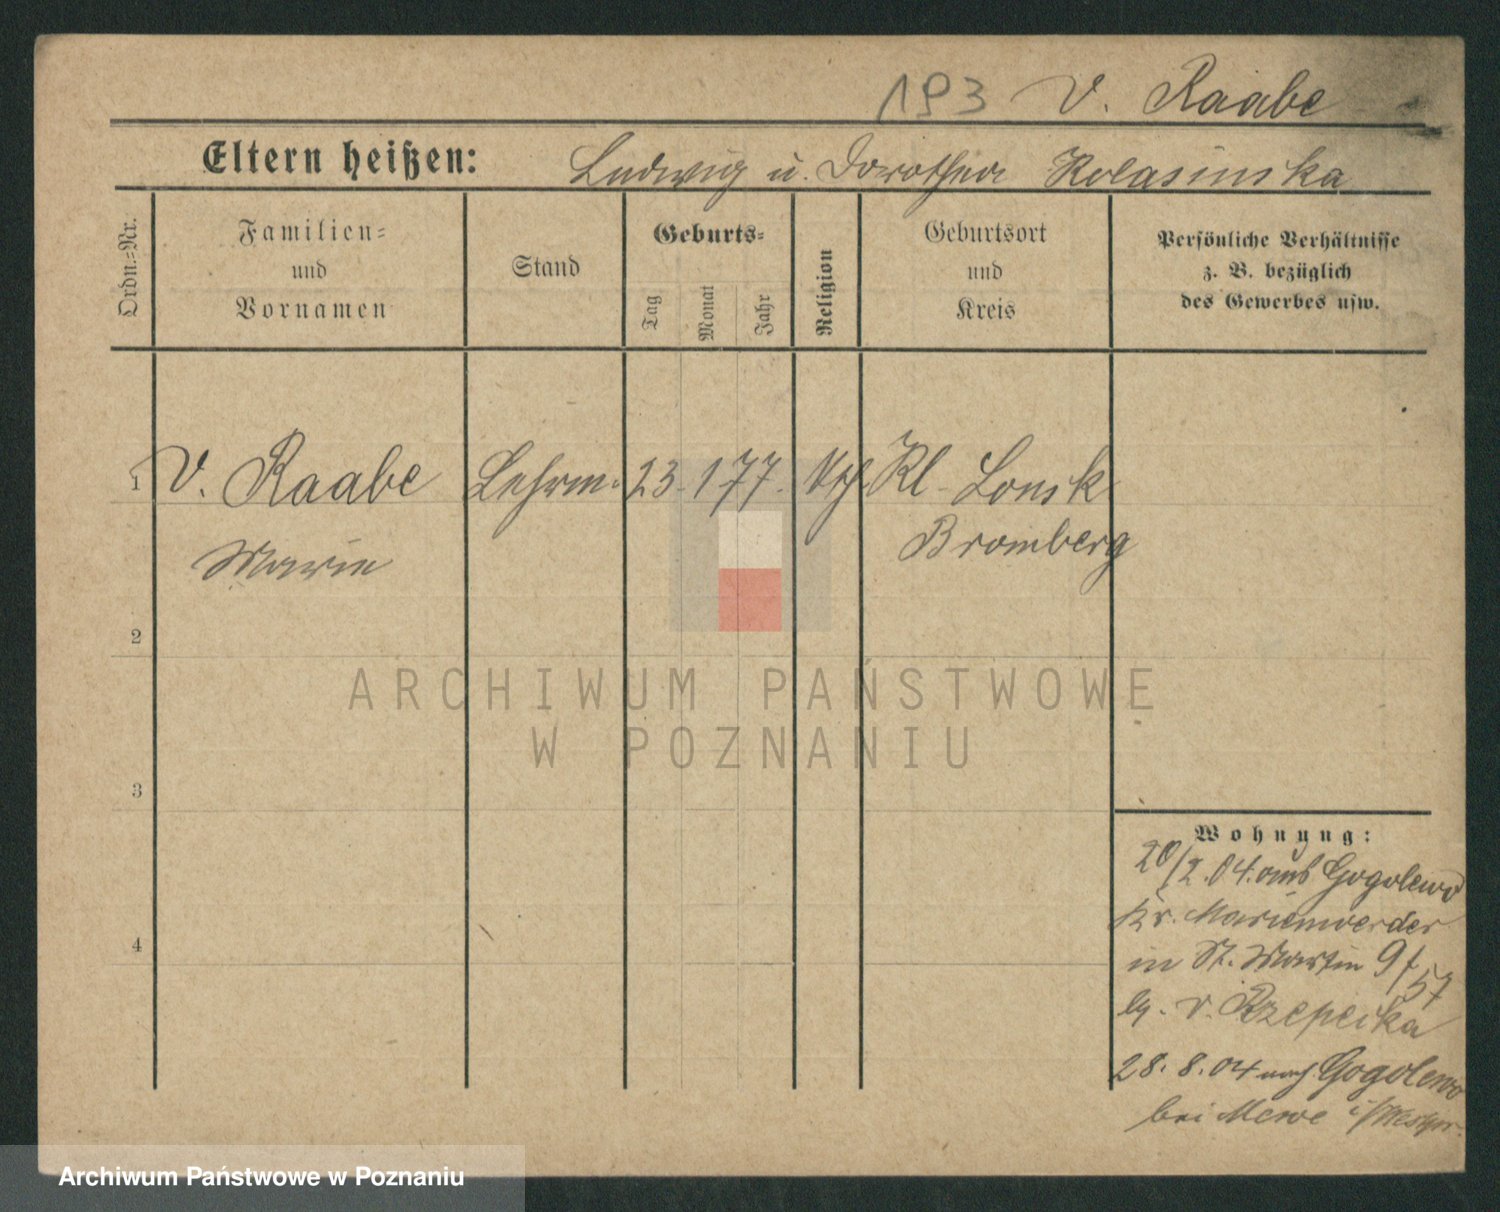 193 v. Raabe
Eltern heißen: Ludwig u. Dorothea Kolasinska
Ordn.-Nr.
Familien-
und
Vornamen
Stand
Geburts-
Tag
Monat
Jahr
Religion
Geburtsort
und
Kreis
Persönliche Verhältnisse
z. B. bezüglich
des Gewerbes usw.
1 v. Raabe Lehrerin 23. 1 77. Kl. Lonsk
Marie Bromberg
2
3
4
Wohnung:
20/2.04. aus Gogolewo
Kr. Marienwerder
in St. Martin 9/57
v. Rzepecka
28. 8. 04 nach Gogolewo
bei Mewe i/Westpr.
ARCHIWUM PAŃSTWOWE
W POZNANIU
Archiwum Państwowe w Poznaniu